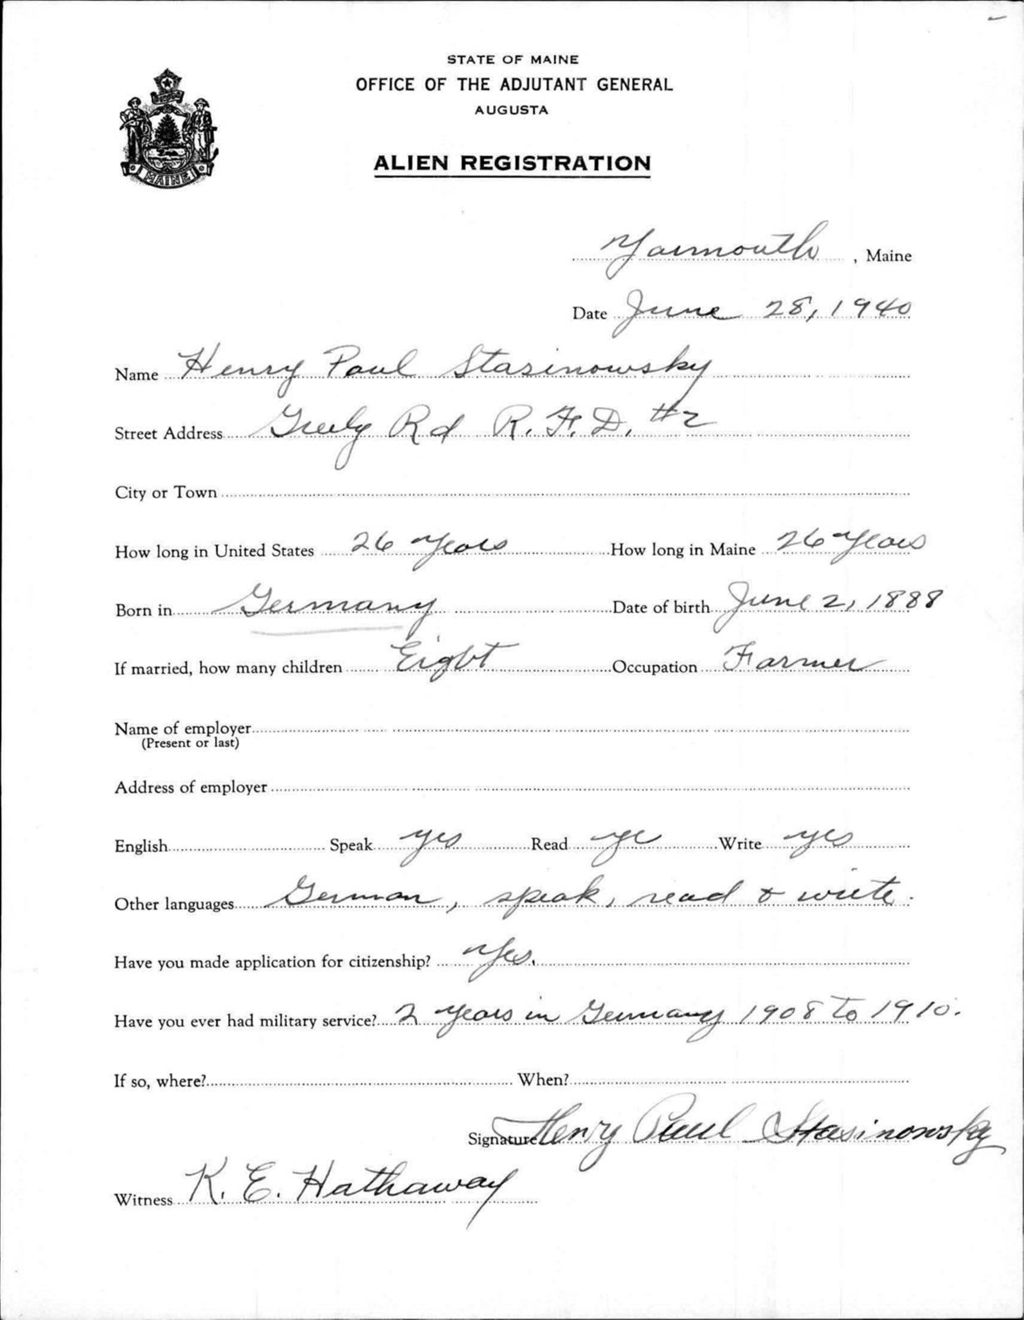 STATE OF MAINE
OFFICE OF THE ADJUTANT GENERAL
AUGUSTA
ALIEN REGISTRATION
MAINE
Yarmouth, Maine
Date June 28, 1940
Name Henry Paul Stasinowsky
Street Address Greely Rd R.F.D. #2
City or Town
How long in United States 26 Years How long in Maine 26 Years
Born in Germany Date of birth June 2, 1888
If married, how many children Eight Occupation Farmer
Name of employer
(Present or last)
Address of employer
English Speak yes Read ye Write yes
Other languages German, speak, read & write.
Have you made application for citizenship? Yes.
Have you ever had military service? 2 years in Germany 1908 to 1910.
If so, where? When?
Signature Henry Paul Stasinowsky
Witness K. E. Hathaway